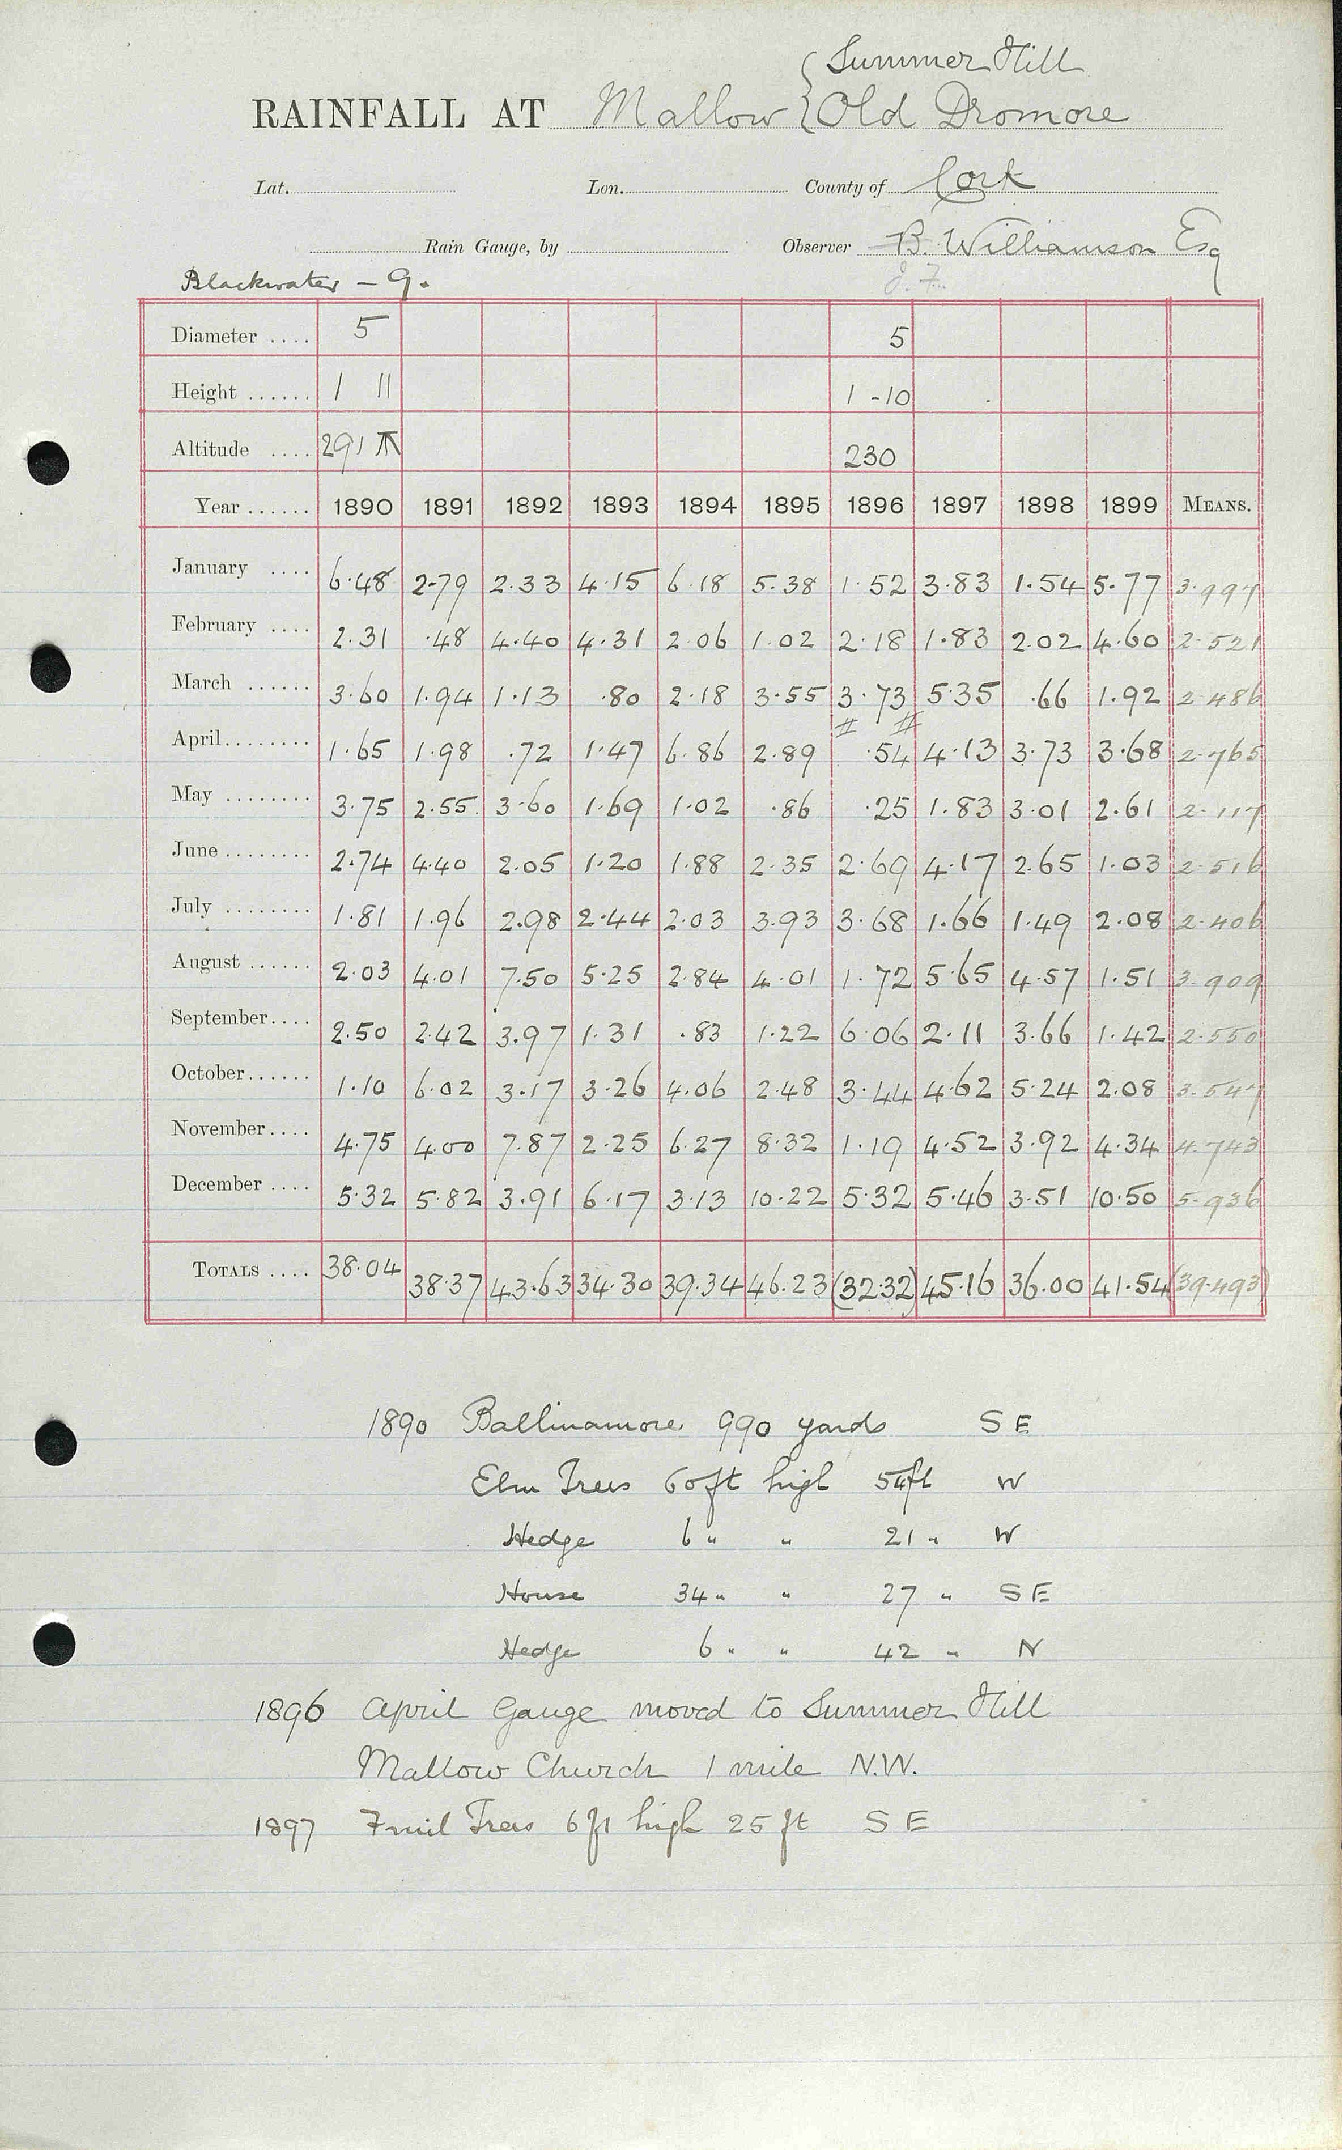 Summer Hill
RAINFALL AT Mallow { Old Dromore
Lat. Lon. County of Cork
Rain Gauge, by Observer B. Williamson Esq
Blackwater - 9.
Diameter .... 5 5
Height ...... 1 11 1-10
Altitude .... 291 230
Year ...... 1890 1891 1892 1893 1894 1895 1896 1897 1898 1899 MEANS.
January .... 6.48 2.79 2.33 4.15 6.18 5.38 1.52 3.83 1.54 5.77 3.997
February .... 2.31 .48 4.40 4.31 2.06 1.02 2.18 1.83 2.02 4.60 2.521
March ...... 3.60 1.94 1.13 .80 2.18 3.55 3.73 5.35 .66 1.92 2.486
April........ 1.65 1.98 .72 1.47 6.86 2.89 .54 4.13 3.73 3.68 2.765
May ........ 3.75 2.55 3.60 1.69 1.02 .86 .25 1.83 3.01 2.61 2.117
June ........ 2.74 4.40 2.05 1.20 1.88 2.35 2.69 4.17 2.65 1.03 2.516
July ........ 1.81 1.96 2.98 2.44 2.03 3.93 3.68 1.66 1.49 2.08 2.406
August ...... 2.03 4.01 7.50 5.25 2.84 4.01 1.72 5.65 4.57 1.51 3.909
September.... 2.50 2.42 3.97 1.31 .83 1.22 6.06 2.11 3.66 1.42 2.550
October...... 1.10 6.02 3.17 3.26 4.06 2.48 3.44 4.62 5.24 2.08 3.547
November.... 4.75 4.00 7.87 2.25 6.27 8.32 1.19 4.52 3.92 4.34 4.743
December .... 5.32 5.82 3.91 6.17 3.13 10.22 5.32 5.46 3.51 10.50 5.936
TOTALS .... 38.04 38.37 43.63 34.30 39.34 46.23 (32.32) 45.16 36.00 41.54 (39.493)
1890 Ballinamore 990 yards SE
Elm Trees 60ft high 54ft W
Hedge 6 " " 21 " W
House 34 " " 27 " SE
Hedge 6 " " 42 " N
1896 April Gauge moved to Summer Hill
Mallow Church 1 mile N.W.
1897 Fruit Trees 6ft high 25ft SE